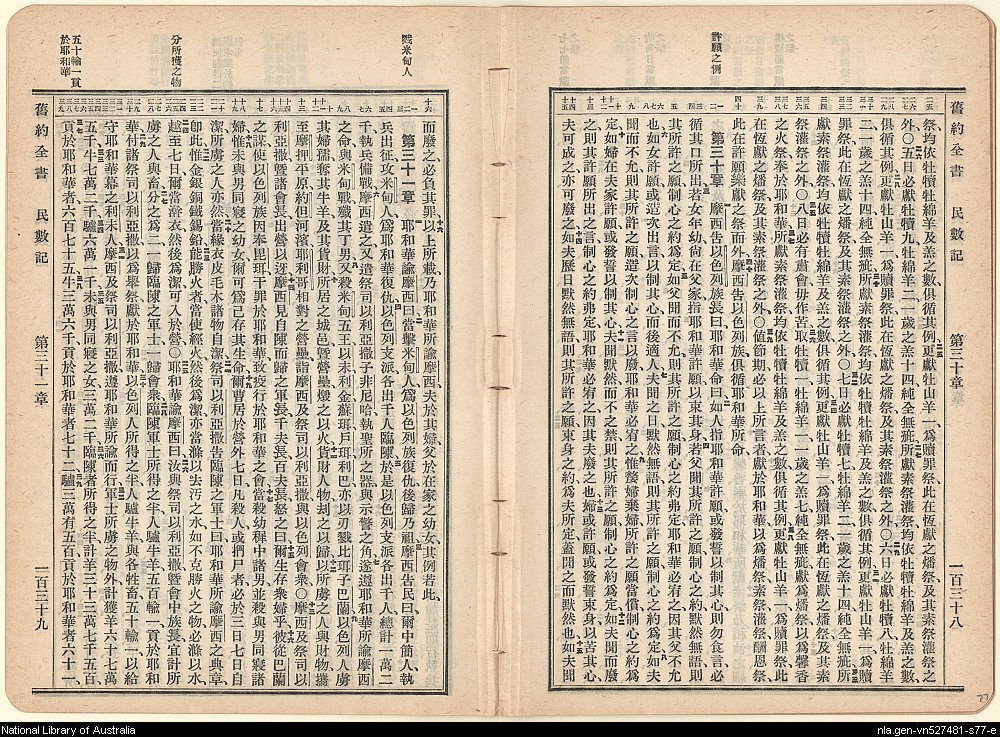 許願之例
舊約全書 民數記 第三十章 一百三十八
祭均依牡犢牡綿羊及羔之數俱循其例更獻牡山羊一爲贖罪祭此在恆獻之燔祭及其素祭灌祭之
外〇五日必獻牡犢九牡綿羊二一歲之羔十四純全無疵所獻素祭灌祭均依牡犢牡綿羊及羔之數
俱循其例更獻牡山羊一爲贖罪祭此在恆獻之燔祭及其素祭灌祭之外〇六日必獻牡犢八牡綿羊
二一歲之羔十四純全無疵所獻素祭灌祭均依牡犢牡綿羊及羔之數俱循其例更獻牡山羊一爲贖
罪祭此在恆獻之燔祭及其素祭灌祭之外〇七日必獻牡犢七牡綿羊二一歲之羔十四純全無疵所
獻素祭灌祭均依牡犢牡綿羊及羔之數俱循其例更獻牡山羊一爲贖罪祭此在恆獻之燔祭及其素
祭灌祭之外〇八日必有肅會毋作苦取牡犢一牡綿羊一一歲之羔七純全無疵獻爲燔祭以爲馨香
之火祭奉於耶和華所獻素祭灌祭均依牡犢牡綿羊及羔之數俱循其例更獻牡山羊一爲贖罪祭此
在恆獻之燔祭及其素祭灌祭之外〇値節期必以上所言者獻於耶和華以爲燔祭素祭灌祭酬恩祭
此在許願樂獻之祭而外摩西告以色列族俱循耶和華所命
第三十章 摩西告以色列族長曰耶和華命曰如人指耶和華許願或發誓以制其心則勿食言必
循其口所出若女年幼尚在父家指耶和華許願以束其身若父聞其所許之願制心之約默然無
言則其所許之願制心之約爲定如父聞而不允則其所許之願制心之約弗定耶和華必宥之因其父不允
也如女許願或造次出言以制其心而後適人夫聞之日默然無語則其所許之願制心之約爲定如夫
聞而不允則其夫廢其所許之願造次制心之言耶和華必宥之惟嫠婦棄婦所許之願當償制心之約爲
定如婦在夫家許願或發誓以制其心夫聞默然而不之禁則其所許之願制心之約爲定如夫聞
之則其許願所出之言制心之約弗定耶和華必宥之因其夫廢之也婦或許願或發誓束身以苦其心
夫可成之亦可廢之如夫歷日默然無語則其所許之願束身之約爲夫所定蓋聞之而默然也如夫聞
戮米甸人
分所獲之物
五十輸一貢於耶和華
而廢之必負其罪以上所載乃耶和華所諭摩西夫於其婦父於在家之幼女其例若此
第三十一章 耶和華諭摩西曰當擊米甸人爲以色列族復仇後歸乃祖摩西告民曰爾中簡人執
兵出征攻米甸人爲耶和華復仇以色列支派各出千人臨陳於是以色列支派各出千人總計一萬二
千執兵備戰摩西遣之又遣祭司以利亞撒子非尼哈執聖所之器與示警之角遂遵耶和華所諭摩西
之命與米甸戰殲其丁男又殺米甸五王以未利金蘇珥戶珥利巴亦以刃戮比珥子巴蘭以色列人虜
其婦孺奪其牛羊及其貨財所居之城邑營壘燬之以火貨財人物刦之以歸以所虜之人與財物攜
至摩押平原約但河濱耶利哥相對之營壘詣摩西及祭司以利亞撒與以色列會衆〇摩西及祭司以
利亞撒暨諸會長出營以迓摩西見自陳而歸之軍長千夫長百夫長怒之曰爾生存衆婦乎彼從巴蘭
之謀使以色列族因奉毘珥干罪於耶和華致疫行於耶和華之會當殺幼穉中諸男並殺與男同寢諸
婦惟未與男同寢之幼女爾可爲己存其生命爾曹居於營外七日凡殺人或捫尸者必於三日七日自
潔所虜之人亦然當緣衣皮毛木諸物自潔祭司以利亞撒告臨陳之軍士曰耶和華所諭摩西之典章
卽此惟金銀銅鐵錫鉛能勝火者當使經火然後爲潔亦當滌以去汚之水如不克勝火之物必滌以水
越至七日爾當澣衣然後爲潔可入於營〇耶和華諭摩西曰汝與祭司以利亞撒暨會中族長宜計所
虜之人與畜分之爲二一歸臨陳之軍士一歸會衆臨陳軍士所得之半人驢牛羊五百輸一貢於耶和
華付諸祭司以利亞撒以爲舉祭獻於耶和華以色列人所得之半人驢牛羊與各牲畜五十輸一以給
守耶和華幕之利未人摩西及祭司以利亞撒遵耶和華所諭而行軍士所虜之物外計獲羊六十七萬
五千牛七萬二千驢六萬一千未與男同寢之女三萬二千臨陳者所得之半計羊三十三萬七千五百
貢於耶和華者六百七十五牛三萬六千貢於耶和華者七十二驢三萬有五百貢於耶和華者六十一
舊約全書 民數記 第三十一章 一百三十九
27
National Library of Australia
nla.gen-vn527481-s77-e